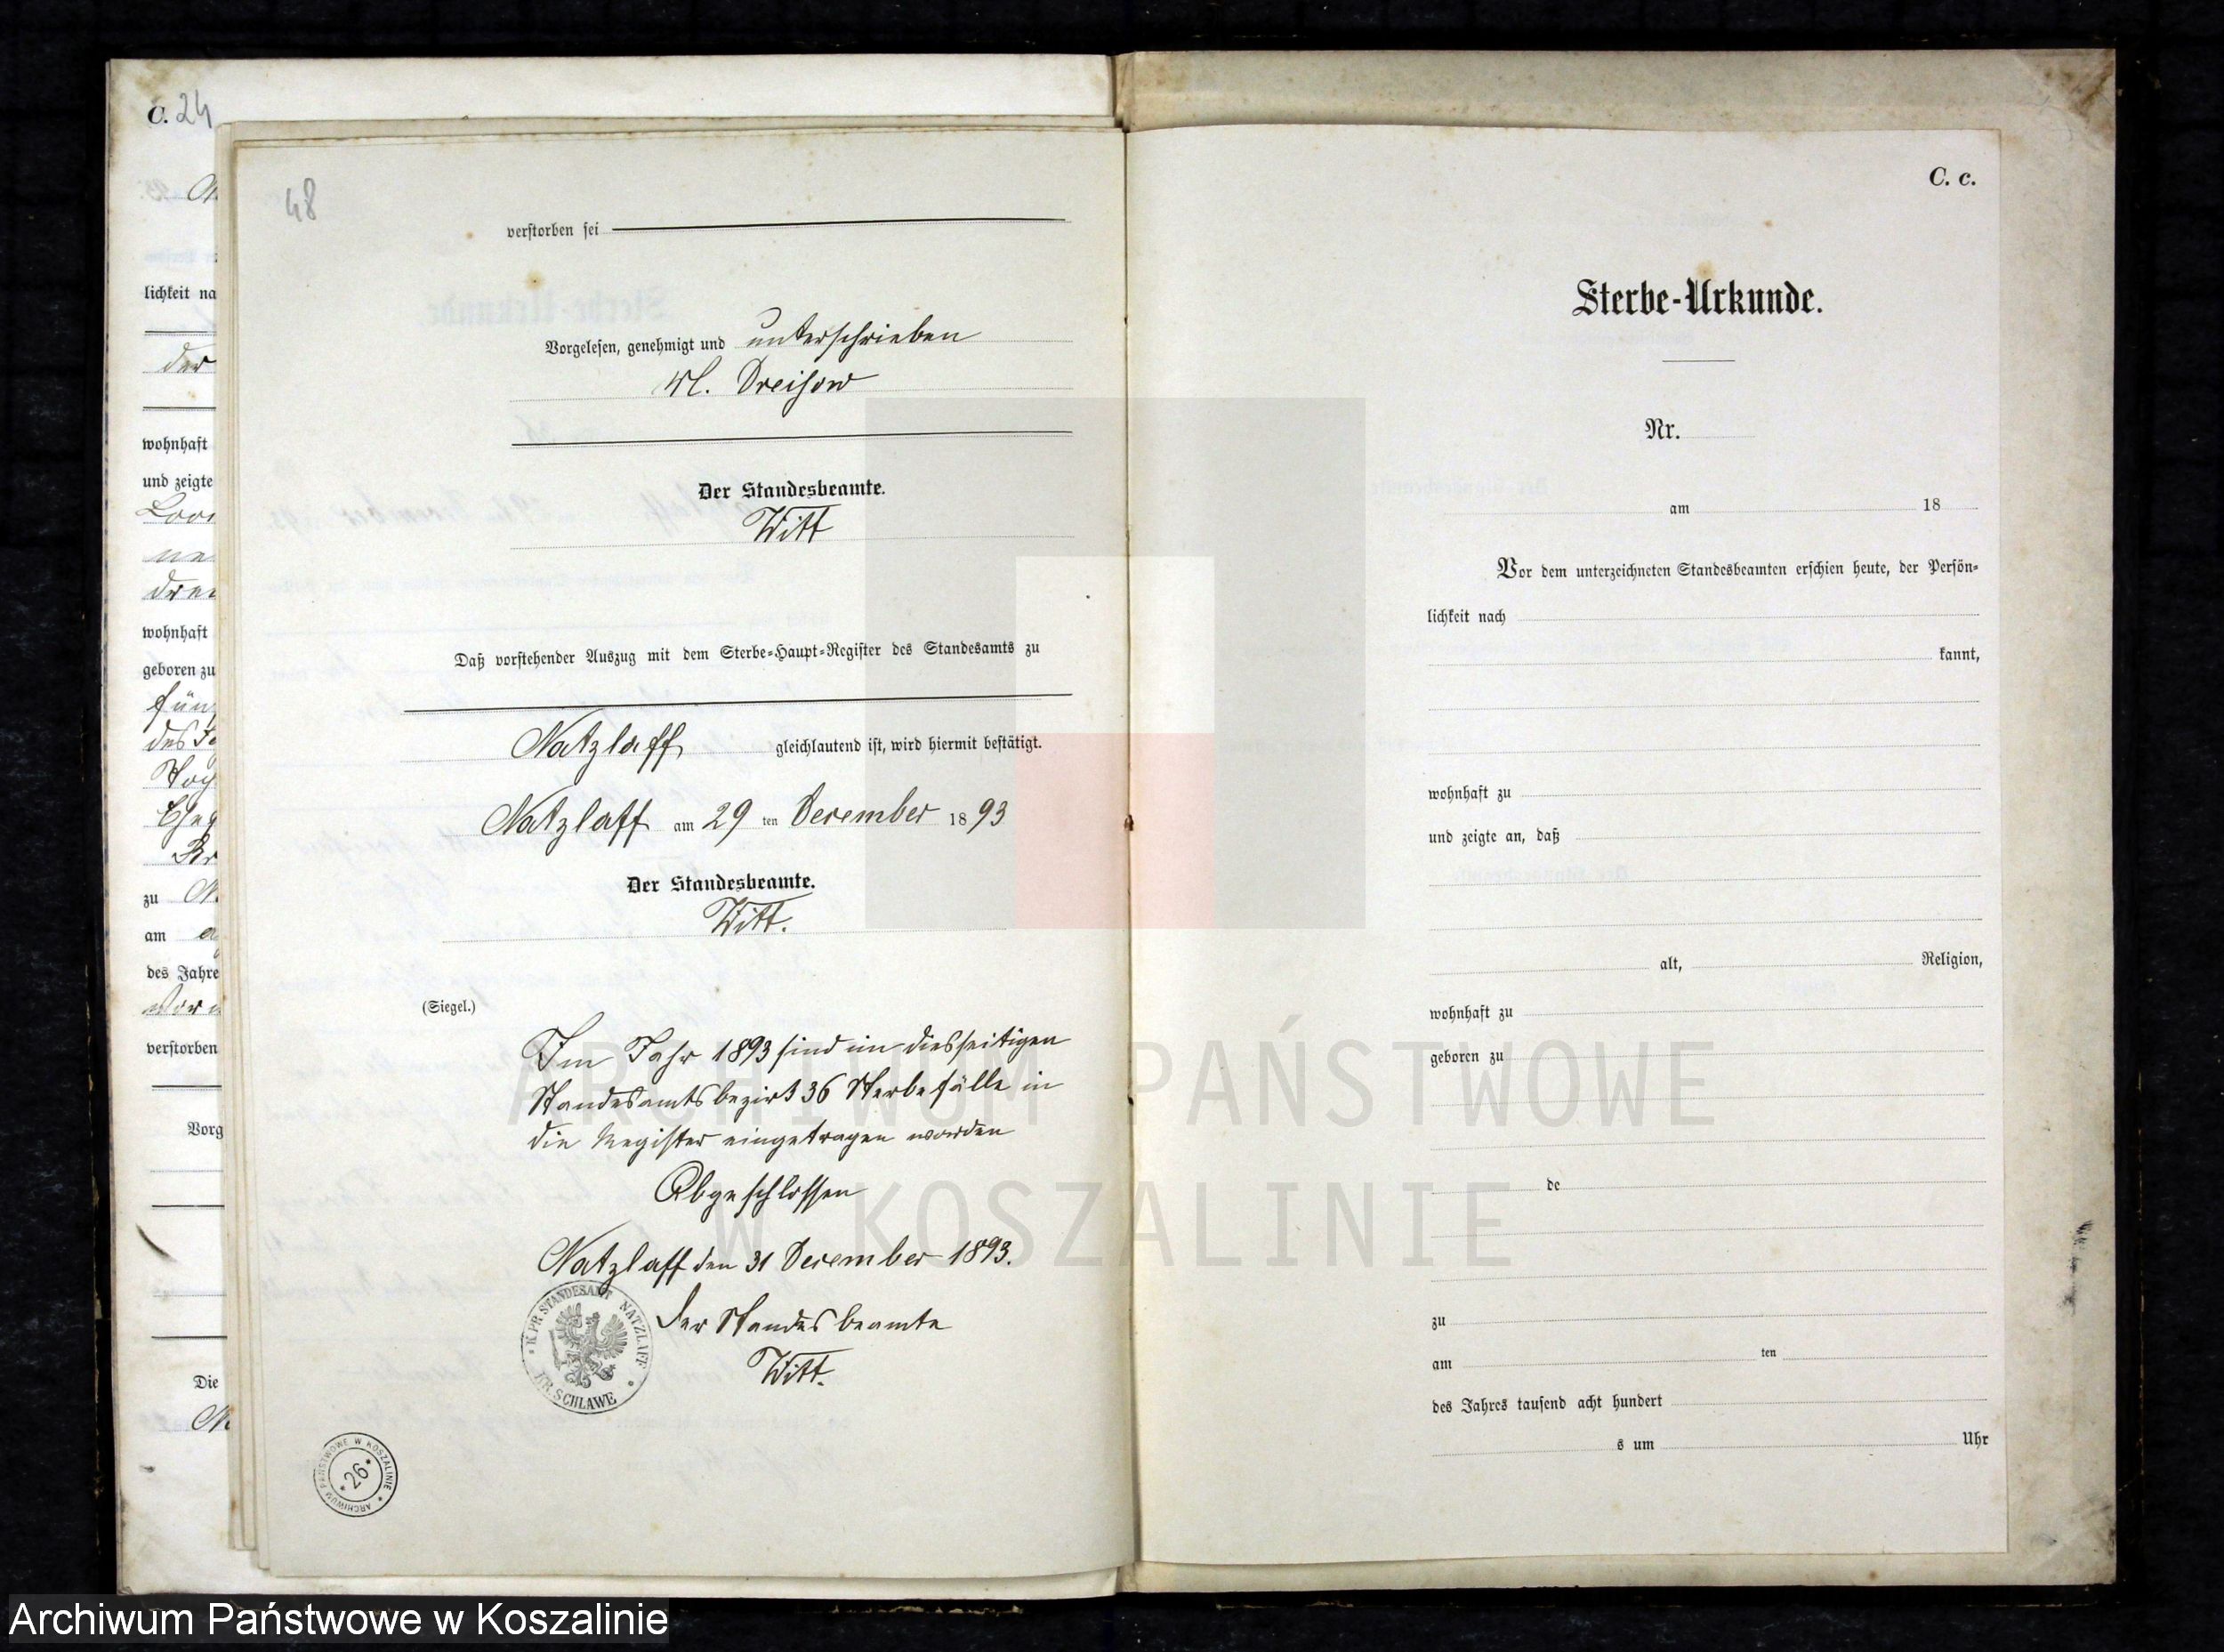 C. 24
lichkeit na
der
wohnhaft
und zeigte
wohnhaft
geboren zu
fün
zu
am
des Jahre
verstorben
Vorg
Die
48
verstorben sei
Vorgelesen, genehmigt und unterschrieben
W. Dreisow
Der Standesbeamte.
Witt
Daß vorstehender Auszug mit dem Sterbe-Haupt-Register des Standesamts zu
Natzlaff gleichlautend ist, wird hiermit bestätigt.
Natzlaff am 29 ten December 1893
Der Standesbeamte.
Witt.
(Siegel.)
Im Jahr 1893 sind im diesseitigen
Standesamtsbezirk 36 Sterbefälle in
die Register eingetragen worden
Abgeschlossen
Natzlaff den 31 December 1893.
Der Standesbeamte
Witt.
K. PR. STANDESAMT NATZLAFF
KR. SCHLAWE
ARCHIWUM PAŃSTWOWE W KOSZALINIE
* 26 *
C. c.
Sterbe-Urkunde.
Nr.
am 18
Vor dem unterzeichneten Standesbeamten erschien heute, der Persön-
lichkeit nach
kannt,
wohnhaft zu
und zeigte an, daß
alt, Religion,
wohnhaft zu
geboren zu
de
zu
am ten
des Jahres tausend acht hundert
s um Uhr
ARCHIWUM PAŃSTWOWE
W KOSZALINIE
Archiwum Państwowe w Koszalinie